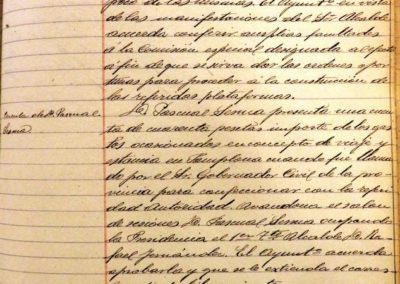 de las manifestaciones del Sr. Alcalde
acuerda conferir amplias facultades
á la Comisión especial designada al efecto
á fin de que se sirva dar las ordenes opor
tunas para proceder á la construcción de
las referidas plataformas.
Cuenta de D. Pascual
Sesma
D. Pascual Sesma presenta una cuen
ta de cuarenta pesetas importe de los gas
tos ocasionados en concepto de viaje y
estancia en Pamplona cuando fue llama
do por el Sr. Gobernador Civil de la pro
vincia para confeccionar con la referi
dad Autoridad. Abandona el salon
de sesiones D. Pascual Sesma ocupando
la Presidencia el 1er Tte Alcalde D. Ra
fael Fernandez. El Ayuntº acuerda
aprobarla y que se le extienda el corres